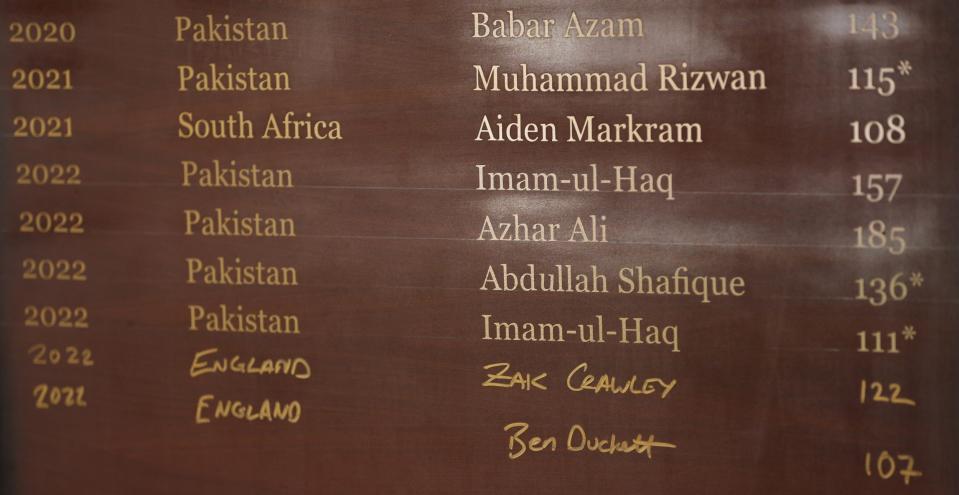 2020 Pakistan Babar Azam 143
2021 Pakistan Muhammad Rizwan 115*
2021 South Africa Aiden Markram 108
2022 Pakistan Imam-ul-Haq 157
2022 Pakistan Azhar Ali 185
2022 Pakistan Abdullah Shafique 136*
2022 Pakistan Imam-ul-Haq 111*
2022 ENGLAND ZAK CRAWLEY 122
2022 ENGLAND Ben Duckett 107